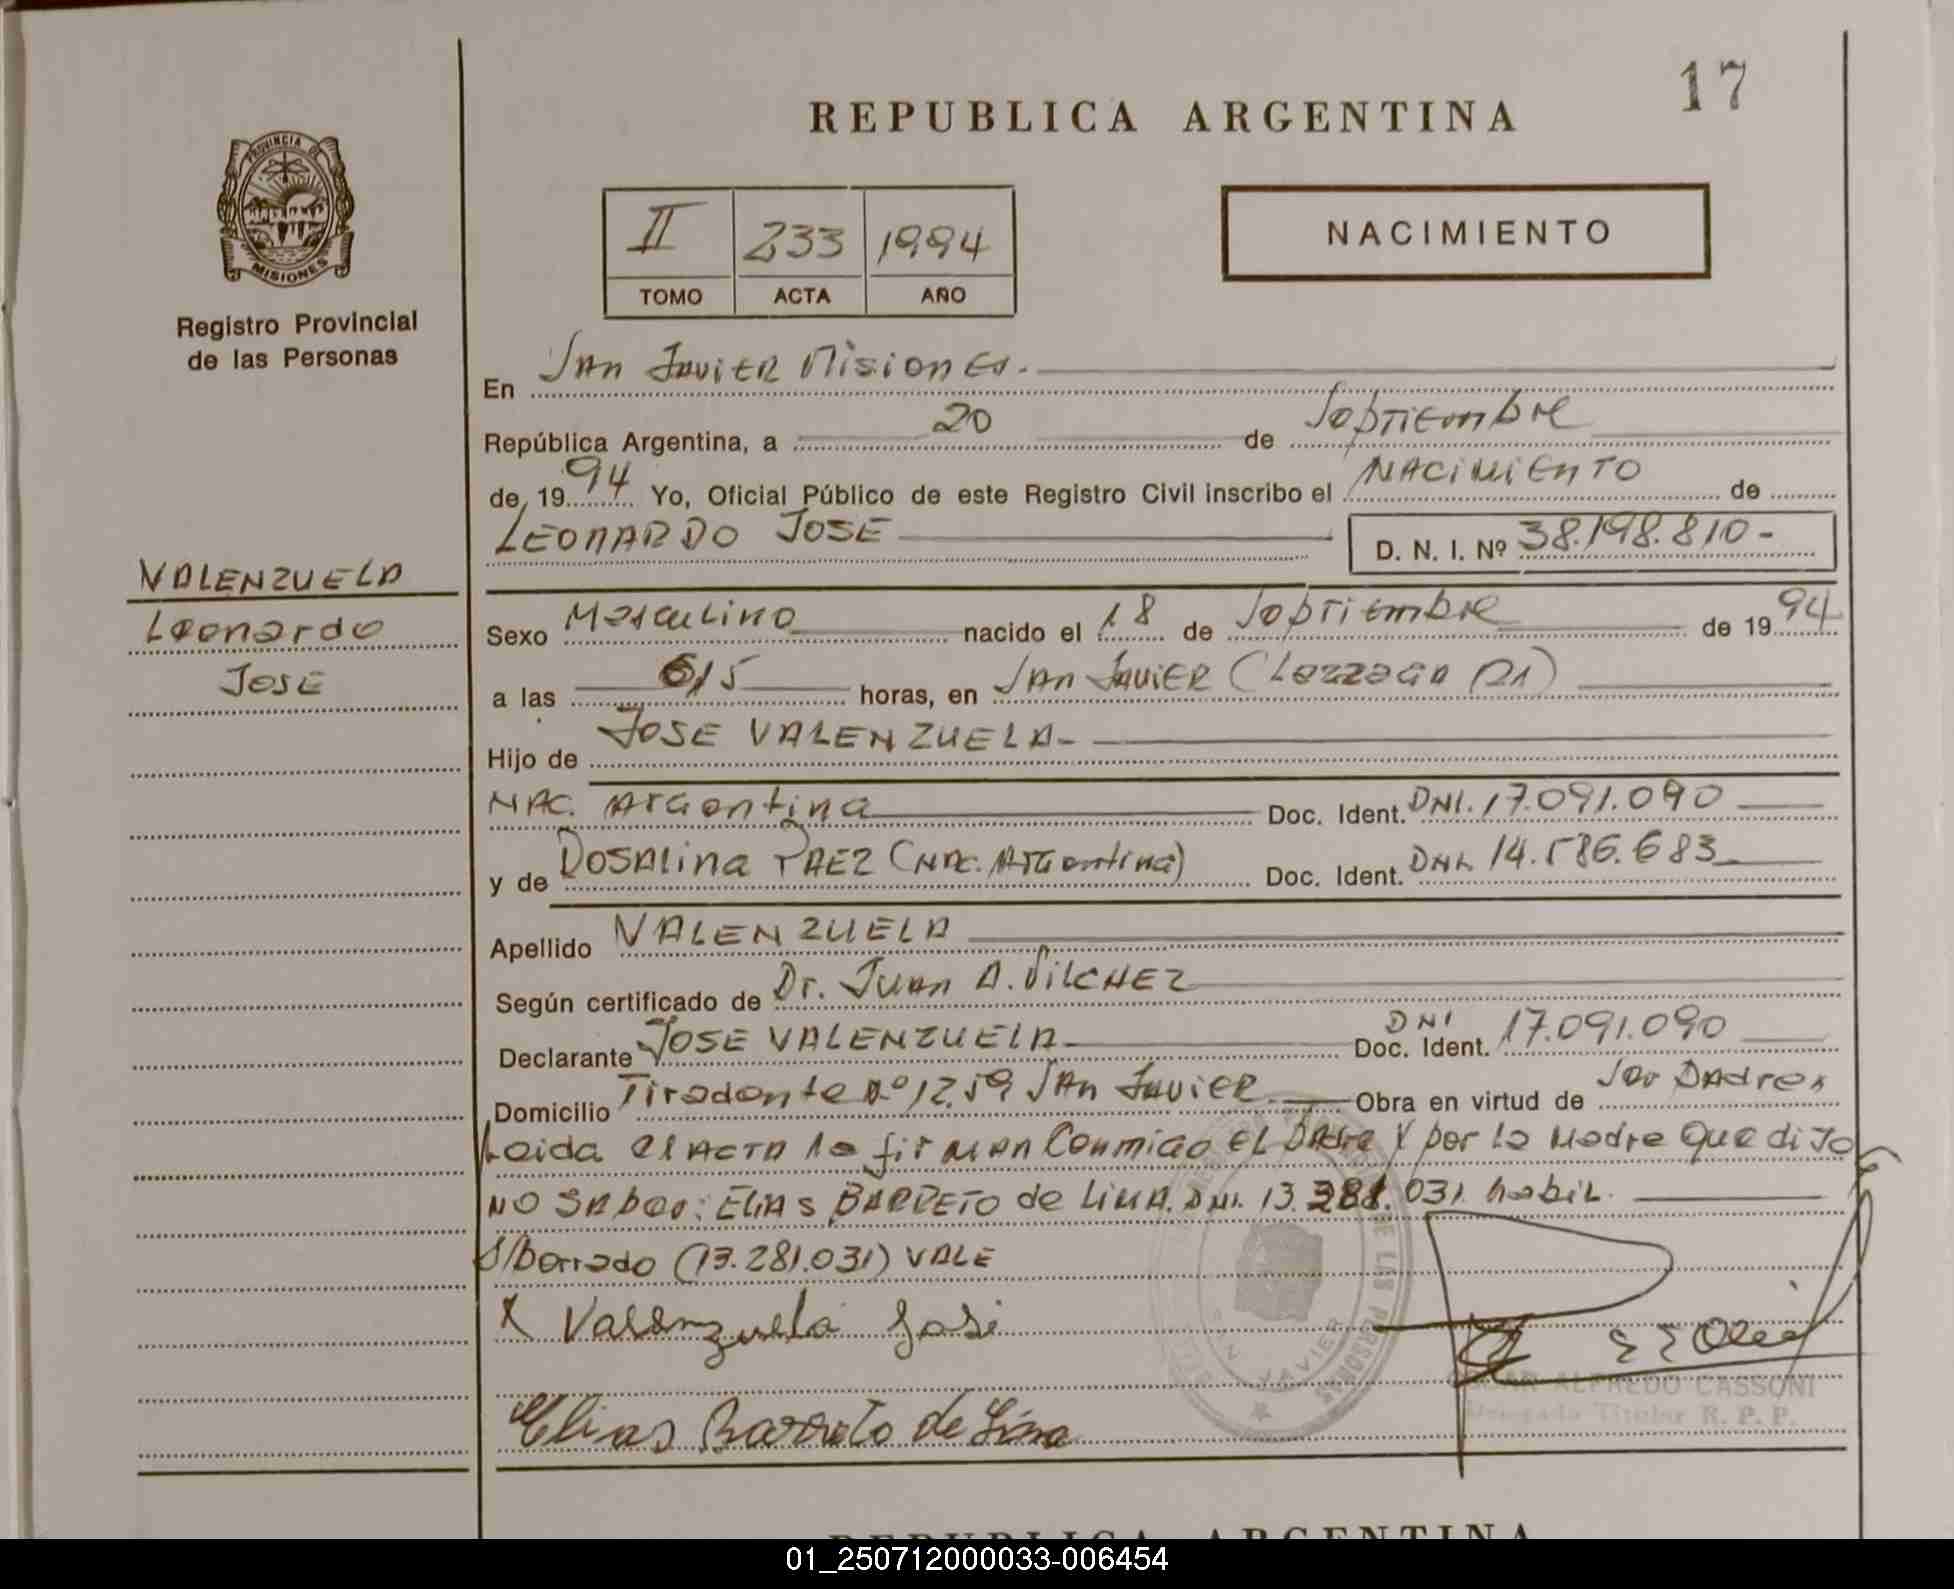 17
REPUBLICA ARGENTINA
PROVINCIA DE
MISIONES
Registro Provincial
de las Personas
II 233 1994
TOMO ACTA AÑO
NACIMIENTO
En San Javier Misiones.
República Argentina, a 20 de Septiembre
de 1994 Yo, Oficial Público de este Registro Civil inscribo el NACIMIENTO de
LEONARDO JOSE D. N. I. Nº 38.198.810-
VALENZUELA
Leonardo
JOSE
Sexo Masculino nacido el 18 de Septiembre de 1994
a las 615 horas, en San Javier
Hijo de JOSE VALENZUELA-
NAC. Argentina Doc. Ident. DNI. 17.091.090
y de ROSALINA PAEZ (NAC. Argentina) Doc. Ident. DNI. 14.586.683
Apellido VALENZUELA
Según certificado de Dr. Juan A. VILCHEZ
Declarante JOSE VALENZUELA DNI Doc. Ident. 17.091.090
Domicilio Tiradente Nº 1259 San Javier Obra en virtud de Ser Padres
Leida el ACTA la firman Conmigo EL PADRE Y por la Madre que dijo
NO SABER: ELIAS BARRETO de LIMA. DNI. 13.281.031. habil.
S/Borrado (13.281.031) VALE
X Valenzuela José
Elias Barreto de Lima
DE LAS PERSONAS
SAN JAVIER
OSCAR ALFREDO CASSONI
Delegado Titular R. P. P.
REPUBLICA ARGENTINA
01_250712000033-006454